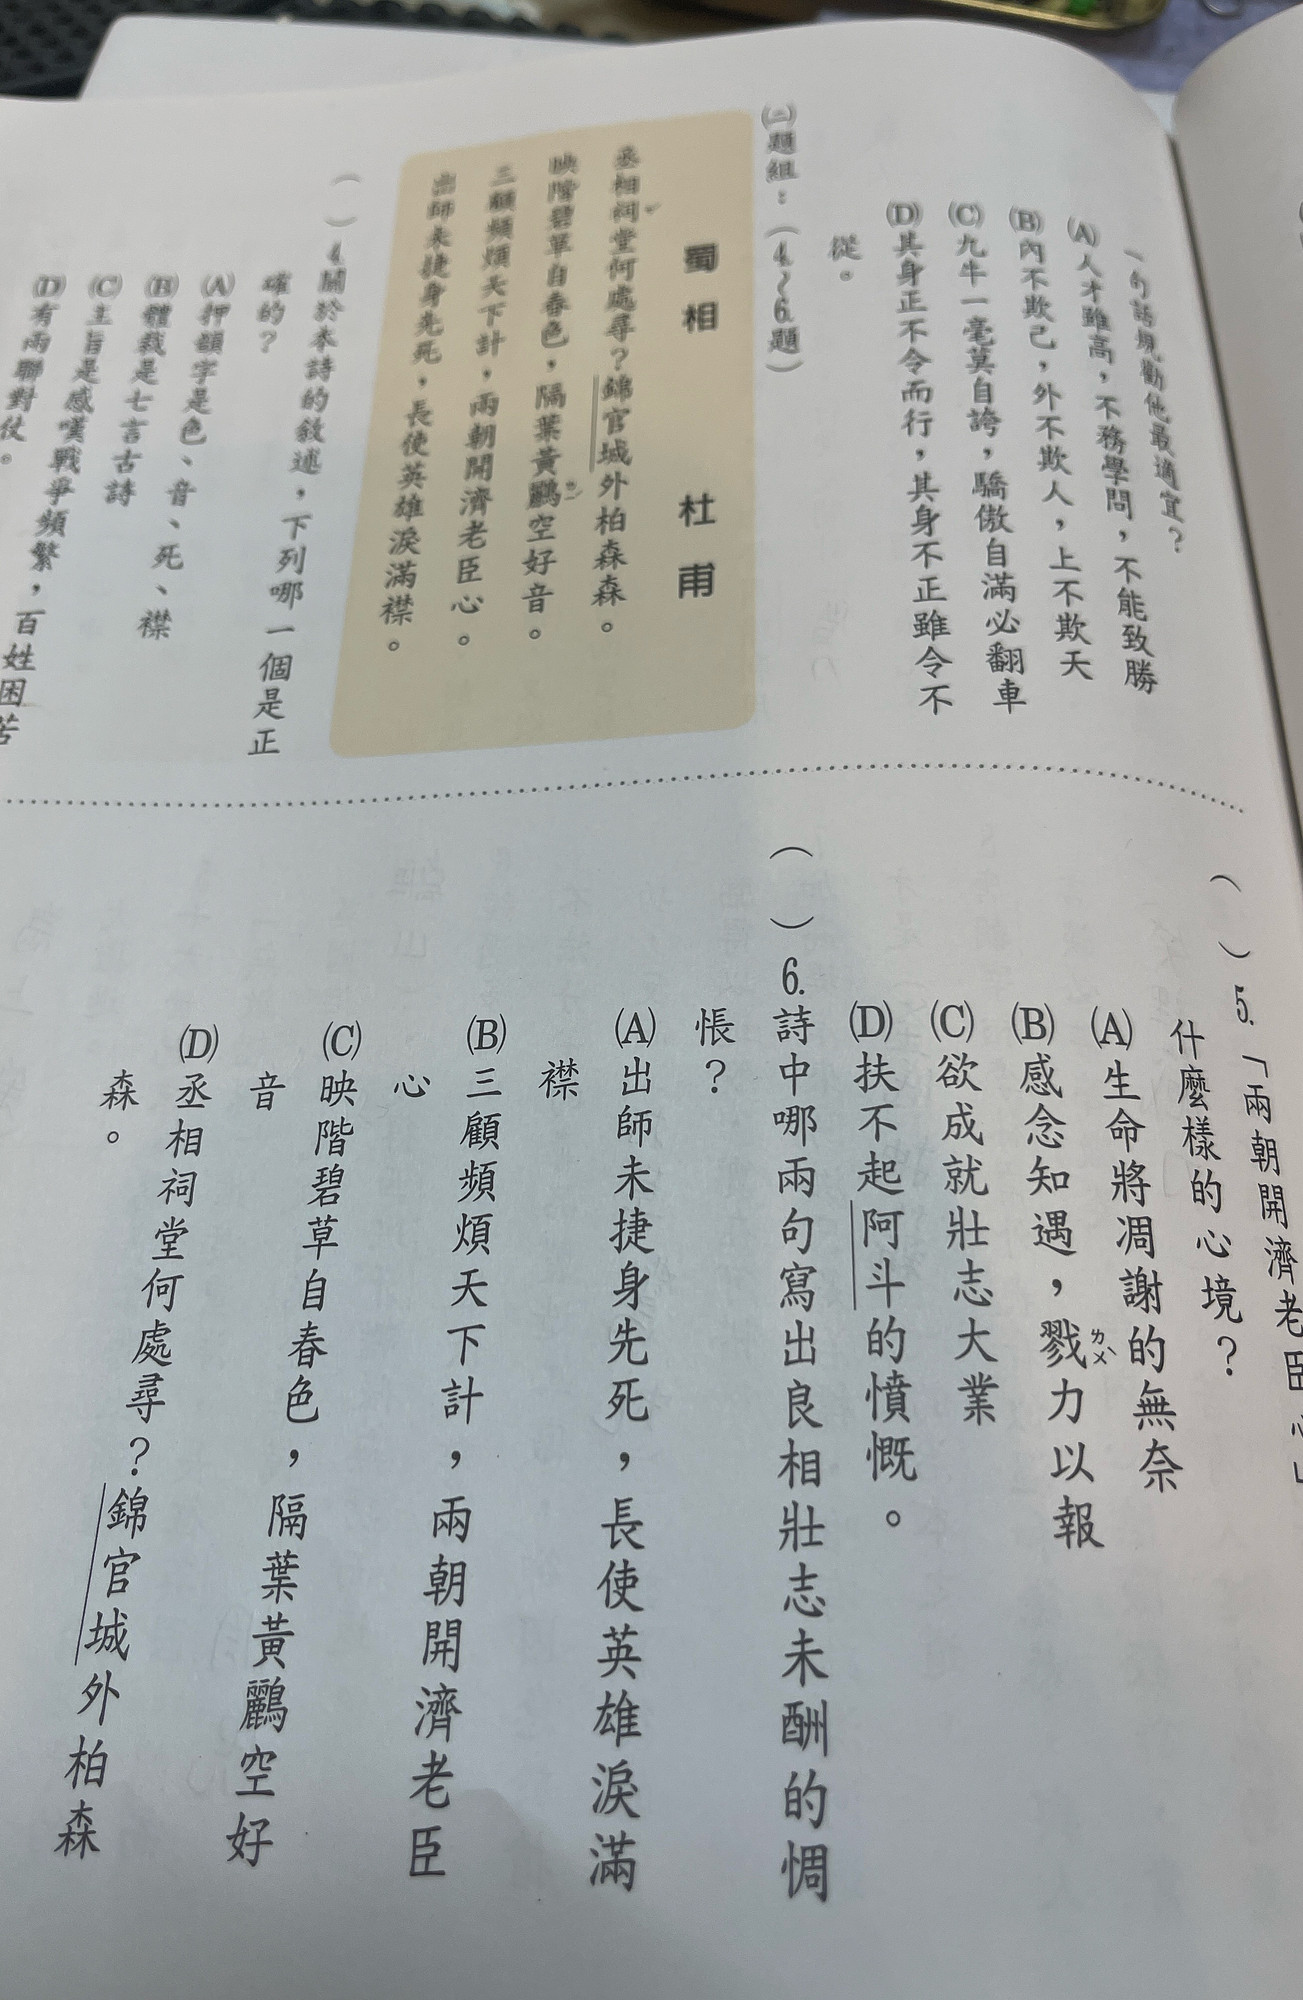 一句話規勸他最適宜？
(A)人才雖高，不務學問，不能致勝
(B)內不欺己，外不欺人，上不欺天
(C)九牛一毫莫自誇，驕傲自滿必翻車
(D)其身正不令而行，其身不正雖令不
從。
㈡題組：（4.～6.題）
蜀相　杜甫
丞相祠堂何處尋？錦官城外柏森森。
映階碧草自春色，隔葉黃鸝空好音。
三顧頻煩天下計，兩朝開濟老臣心。
出師未捷身先死，長使英雄淚滿襟。
（　）4.關於本詩的敘述，下列哪一個是正
確的？
(A)押韻字是色、音、死、襟
(B)體裁是七言古詩
(C)主旨是感嘆戰爭頻繁，百姓困苦
(D)有兩聯對仗。
（　）5.「兩朝開濟老臣心」
什麼樣的心境？
(A)生命將凋謝的無奈
(B)感念知遇，戮ㄌㄨˋ力以報
(C)欲成就壯志大業
(D)扶不起阿斗的憤慨。
（　）6.詩中哪兩句寫出良相壯志未酬的惆
悵？
(A)出師未捷身先死，長使英雄淚滿
襟
(B)三顧頻煩天下計，兩朝開濟老臣
心
(C)映階碧草自春色，隔葉黃鸝空好
音
(D)丞相祠堂何處尋？錦官城外柏森
森。